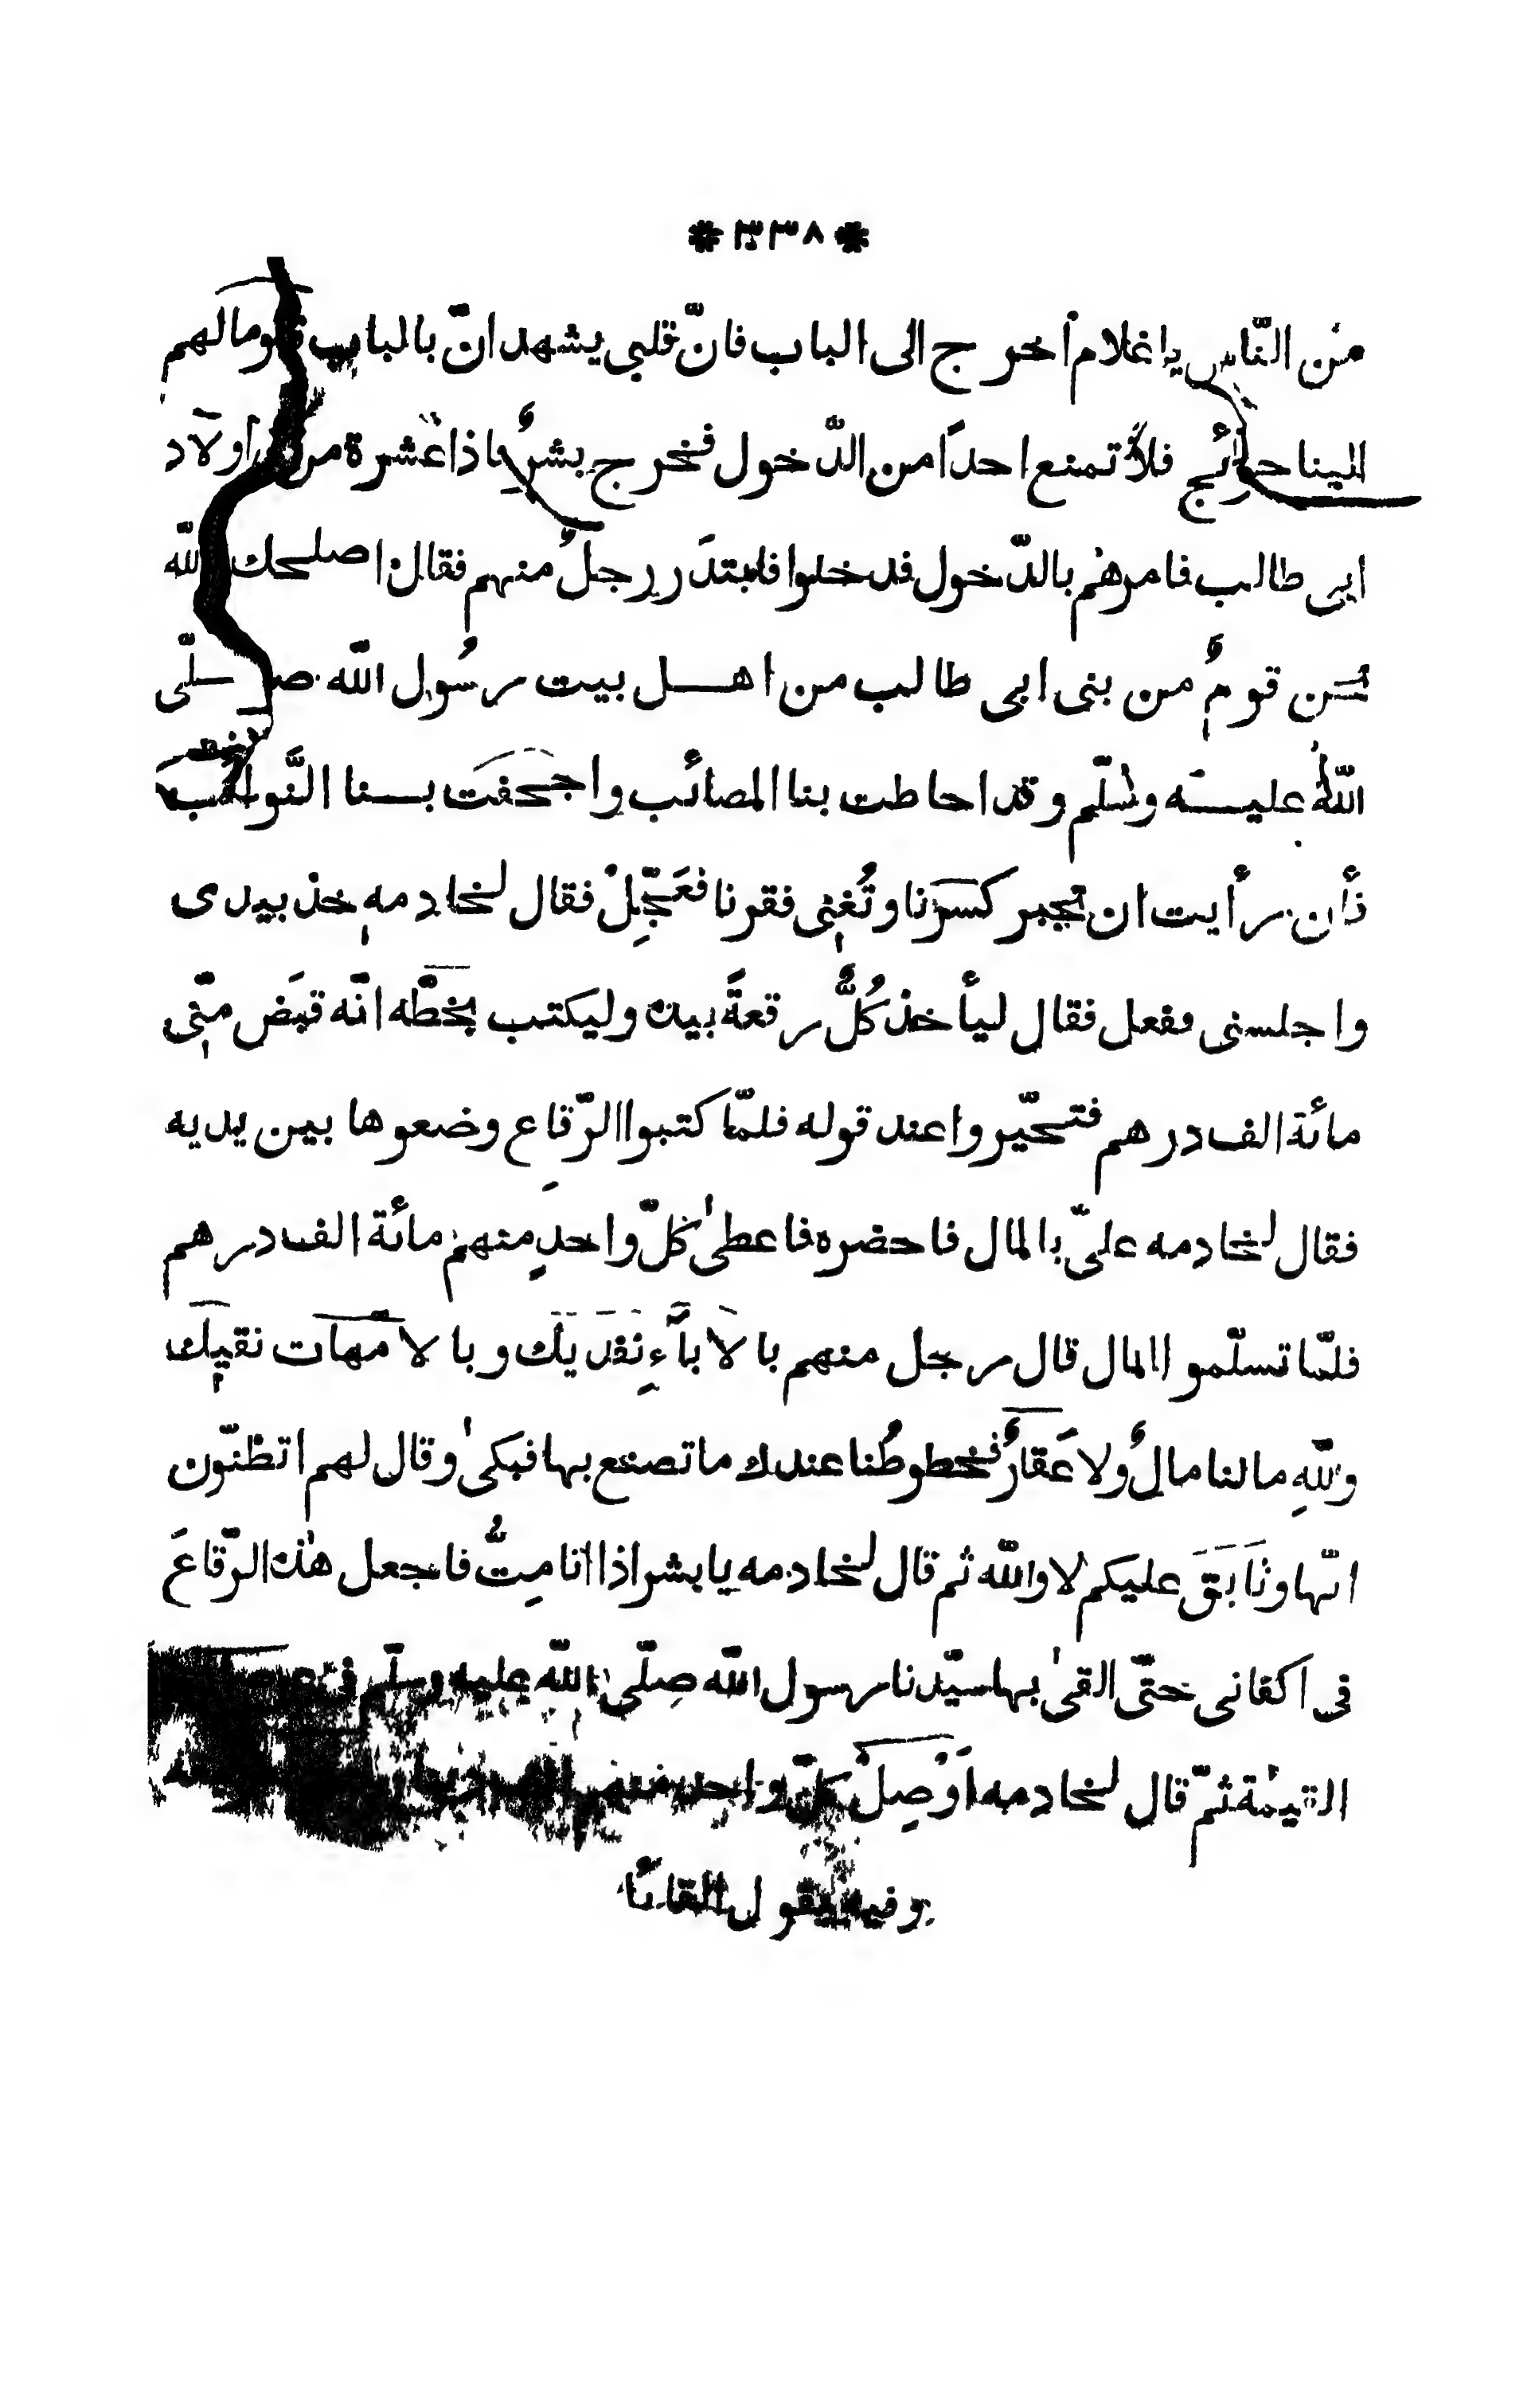 * ٣٣٨ *
من النّاس يا غلام أخرج الى الباب فانّ قلبى يشهد انّ بالباب ومالهم
الينا حوائج فلا تمنع احداً من الدّخول فخرج بشرٌ فاذا عشرة من اولاد
ابى طالب فامرهُم بالدّخول فدخلوا فابتدَر رجلٌ منهم فقال اصلحك الله
نحن قومٌ من بنى ابى طالب من اهل بيت رسُول الله صلّى
اللهُ عليه وسلّم وقد احاطت بنا المصائب واجحفت بنا النَّوائب
فأن رأيت ان تجبر كسرَنا وتُغنِى فقرنا فعَجِّلْ فقال لخادمه خذ بيدى
واجلسنى ففعل فقال ليأخذ كُلُّ رقعةً بيده وليكتب بخطّه انّه قبَض منّى
مائة الف درهم فتحيّروا عند قوله فلمّا كتبوا الرّقاعِ وضعوها بين يديه
فقال لخادمه علىّ بالمال فاحضره فاعطىٰ كلّ واحدٍ منهم مائة الف درهم
فلمّا تسلّموا المال قال رجل منهم بالآباَءِ نفديك وبالامّهات نقيك
واللهِ مالنا مالٌ ولا عَقارٌ فخطوطُنا عندك ما تصنع بها فبكىٰ وقال لهم اتظنّون
انّها وثَابَقَ عليكم لا والله ثم قال لخادمه يا بشر اذا انا مِتُّ فاجعل هٰذه الرّقاعَ
فى اكفانى حتّى القىٰ بها سيّدنا رسول الله صلّى الله عليه وسلّم فى
القيٰمة ثمّ قال لخادمه اَوْصِلْ كلّ واحد منهم الف
وفيه يقول القائل